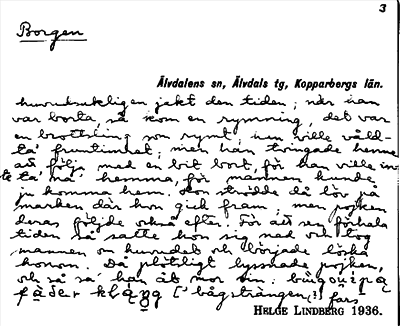 3
Borgen
Älvdalens sn, Älvdals tg, Kopparbergs län.
huvudsakligen jakt den tiden; när han
var borta, så kom en rymning, det var
en brottsling som rymt. Han ville våld-
ta' fruntimret, men han tvingade henne
att följa med en bit bort, för han ville in-
te ta' na' hemma, för mannen kunde
ju komma hem. Hon strödde då löv på
marken där hon gick fram, men pojken
deras följde också efter. För att förhala
tiden så satte hon sig ned och tog
mannen om huvudet och började löska
honom. Då plötsligt lyssnade pojken,
och så sa' han åt mor sin:
fader klang ['bågsträngen'] fars
HELGE LINDBERG 1936.